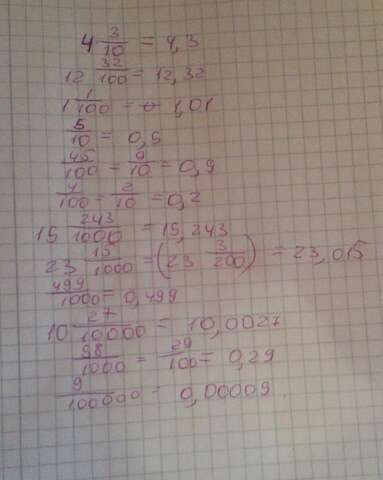 4 3/10 = 4,3
12 32/100 = 12,32
1 1/100 = 1,01
5/10 = 0,5
45/100 = 9/10 = 0,9
4/100 = 2/10 = 0,2
15 243/1000 = 15,243
23 15/1000 = (23 3/200) = 23,015
499/1000 = 0,499
10 27/10000 = 10,0027
98/1000 = 29/100 = 0,29
9/100000 = 0,00009